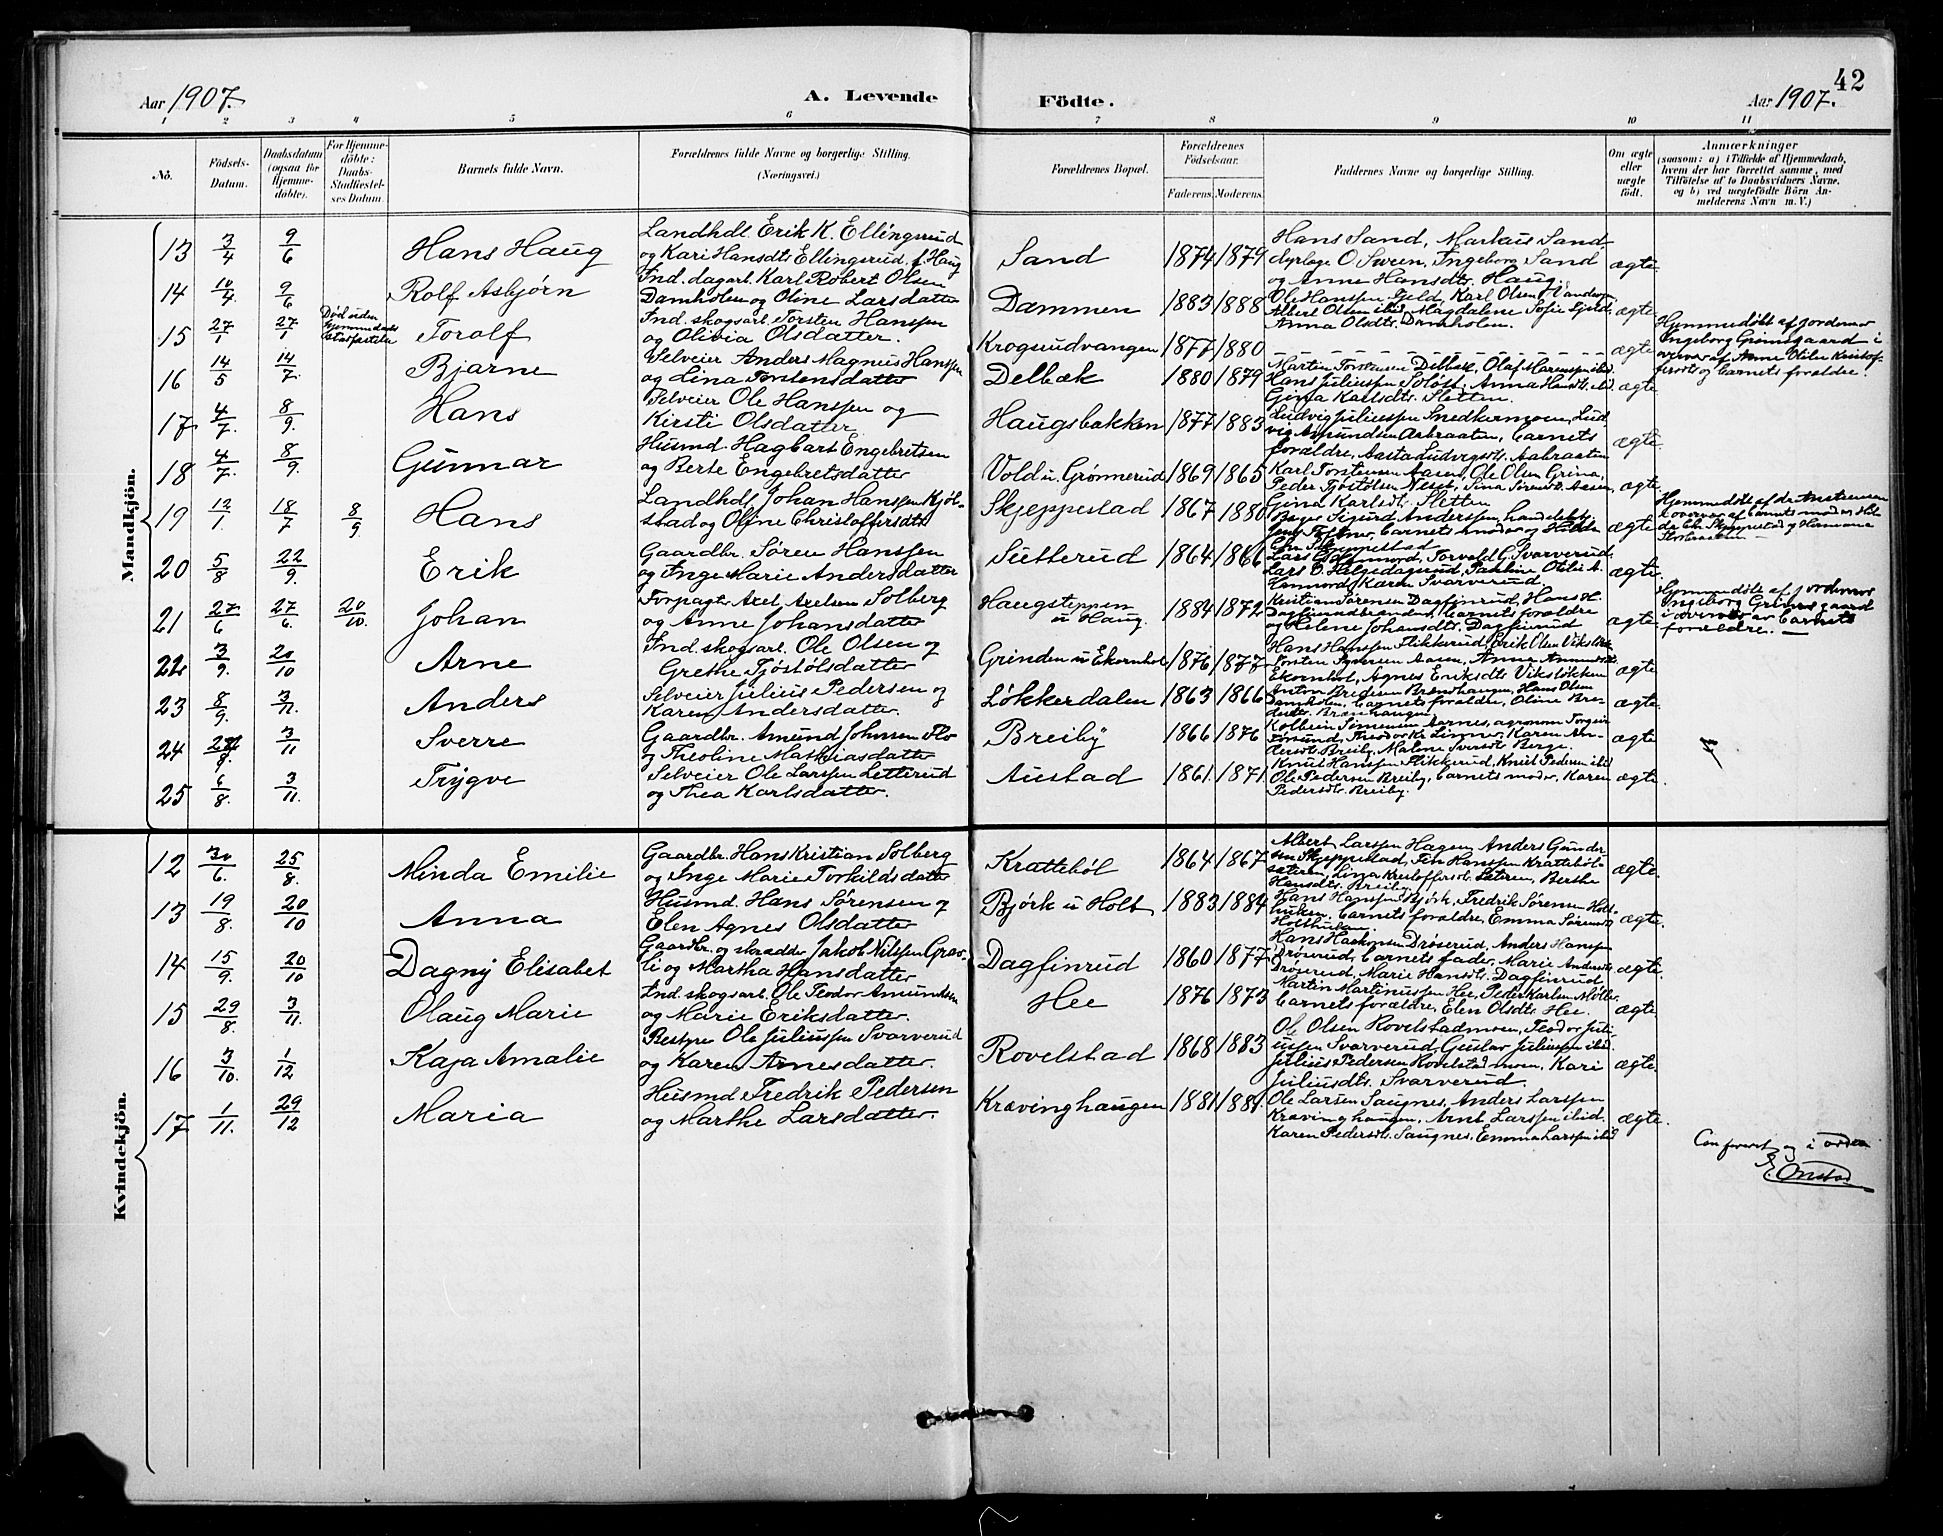 42
Aar 1907.
A. Levende
Födte.
Aar 1907.
1 2 3 4 5 6 7 8 9 10 11
No.
Födsels-
Datum.
Daabsdatum
(ogsaa for
Hjemme-
döbte).
For Hjemme-
döbte:
Daabs-
Stadfæstel-
ses Datum.
Barnets fulde Navn.
Forældrenes fulde Navne og borgerlige Stilling.
(Næringsvei.)
Forældrenes Bopæl.
Forældrenes
Födselsaar.
Faderens. Moderens.
Faddernes Navne og borgerlige Stilling.
Om ægte
eller
uægte
födt.
Anmærkninger
(saasom: a) i Tilfælde af Hjemmedaab,
hvem der har forrettet samme, med
Tilföielse af to Daabsvidners Navne,
og b) ved uægtefödte Börn An-
melderens Navn m. V.)
Mandkjön.
13 3/4 9/6 Hans Haug
Landhdl. Erik K. Ellingsrud
og Kari Hansdtr Ellingsrud f. Haug
Sand 1874 1879
Hans Sand, Markus Sand,
O. Sween, Ingeborg Sand
og Anne Hansdtr. Haug.
ægte
14 10/4 9/6 Rolf Asbjørn
Ind. dagarb. Karl Robert Olsen
Damholen og Oline Larsdatter
Dammen 1883 1888
Ole Hanssen Gjeld, Karl Olsen
Albert Olsen ibid, Magdalene Sofie Gjeld,
Anna Olsdtr. Damholen.
ægte
15 27/1 27/1 Død siden
Hjemmedaabs
stadfæstelse
Torolf
Ind. skogsarb. Torsten Hanssen
og Olivia Olsdatter.
Krogsrudvangen 1877 1880
ægte
Hjemmedøbt af jordemor
Ingeborg Grimsgaard i
overvær af Anne Otilie Kristof-
fersdt. og barnets forældre.
16 14/5 14/7 Bjarne
Selveier Anders Magnus Hanssen
og Lina Torstensdatter
Delbæk 1880 1879
Martin Torstensen Delbæk, Olaf ibid
Hans Juliussen Soløst, Anna
Gina Karlsdtr. Sletten.
ægte.
17 4/7. 8/9. Hans
Selveier Ole Hanssen og
Kirsti Olsdatter
Haugsbakken 1877 1883
Ludvig Juliussen Snedkermoen, Lud
vig Amundsen Aabraaten, barnets
forældre, Aasta Ludvigsdtr. Aabraaten
ægte.
18 4/7. 8/9. Gunnar
Husmd. Hagbart Engebretsen
og Berte Engebretsdatter
Vold u. Grønnerud 1869 1865
Karl Torstensen Aasen, Ole Olsen Grina,
Peder Tjøstolsen Neset, Sina Sørensdt. Aasen,
Gina Karlsdt. Sletten
ægte.
19 12/1. 18/7 8/9 Hans
Landhdl. Johan Hanssen Kjøl-
stad og Oline Christoffersdtr
Skjeppestad 1867 1880
Sigurd Anderssen,
barnets moder og Hilda
Chr. Skjeppestad
ægte
20 5/8 22/9. Erik
Gaardbr. Søren Hanssen
og Inge Marie Andersdatter
Sutterud 1864 1866
Torvald G. Svarverud,
Lars O. Helgedagsrud, Pauline Otilie A.
Hamnord, Karen Svarverud.
ægte.
21 27/6 27/6. 20/10. Johan
Forpagter Axel Axelsen Solberg
og Anne Johansdatter
Haugsteppen
u Haug. 1884 1872
Kristian Sørensen Dagfinrud, Hans H.
Dagfinrudbraaten, barnets forældre
og Helene Johansdtr. Dagfinrud
ægte.
Hjemmedøbt af jordemor
Ingeborg Grimsgaard
i overvær av barnets
forældre.
22 3/9. 20/10 Arne
Ind. skogsarb. Ole Olsen og
Grethe Tjøstølsdatter
Grinden u Ekornhol 1876 1877
Hans Hanssen Slikkerud, Erik Olsen Vikstøkken
Torsten Aasen, Anne
Ekornhol, Agnes Eriksdtr Vikstøkken
ægte
23 8/9. 3/11. Anders
Selveier Julius Pedersen og
Karen Andersdatter.
Løkkerdalen 1863 1866
Anton Bredesen Brænhaugen, Hans Olsen
Damholen, barnets forældre, Oline Bre-
desdtr. Brænhaugen
ægte.
24 3/11 Sverre
Gaardbr. Amund Johnsen Flo
og Theoline Mathiasdatter
Breiby 1866 1876
Kolbein Simensen Aarnes, agronom Torgeir
Karen An-
dersdt. Breiby, Malene Syversdt. Berge.
ægte
25 6/8. 3/11. Trygve
Selveier Ole Larssen Letterud
og Thea Karlsdatter.
Austad 1861. 1871.
Knut Hanssen Slikkerud, Knut Pedersen ibid
Ole Pedersen Breiby, barnets moder, Karen
Pedersdtr. Breiby.
ægte.
Kvindekjön.
12 30/6. 25/8. Minda Emilie
Gaardbr. Hans Kristian Solberg
og Inge Marie Torkildsdatter
Kratteböl 1864 1867
Albert Larssen Hagen, Anders Gunder-
sen Skjeppestad, Fin Hanssen Krattebøl-
sæteren, Lina Kristoffersdt. Sæteren, Berthe
Hansdtr. Breiby
ægte.
13 19/8. 20/10 Anna
Husmd. Hans Sørensen og
Elen Agnes Olsdatter
Bjørk u Holt 1883 1884
Hans Hanssen Bjørk, Fredrik Sørensen Holt-
huken, barnets forældre, Emma Sørensdt
Holthuken.
ægte.
14 15/9. 20/10 Dagny Elisabet
Gaardbr. og skrædder Jakob Nilssen Grav-
li og Martha Hansdatter
Dagfinrud 1860 1877
Hans Haakonsen Drøserud, Anders Hanssen
Drøserud, barnets fader, Marie Andersdt.
Drøserud, Marie Hansdtr. Dagfinrud
ægte.
15 29/8. 3/11. Olaug Marie
Ind. skogsarb. Ole Teodor Amundsen
og Marie Eriksdatter.
Hee 1876 1873
Martin Martinussen Hee, Peder Karlsen Møller,
barnets forældre, Elen Olsdtr. Hee.
ægte.
16 3/10. 1/12 Kaja Amalie
Bestyrer Ole Juliussen Svarverud
og Karen Arnesdatter.
Rovelstad 1868 1883
Ole Olsen Rovelstadmoen, Teodor Juli-
ussen Svarverud, Gustav Juliussen ibid.
Julius Pedersen Rovelstadmoen, Kari
Juliusdtr. Svarverud
ægte.
17 1/11. 29/12 Maria
Husmd Fredrik Pedersen
og Marthe Larsdatter.
Krævinghaugen 1881 1881.
Ole Larsen Saugnes, Anders Larssen
Krævinghaugen, Arnt Larssen ibid.
Karen Pedersdt. Saugnes, Emma Larssen ibid
ægte.
Confereret og i orden
E. Onstad